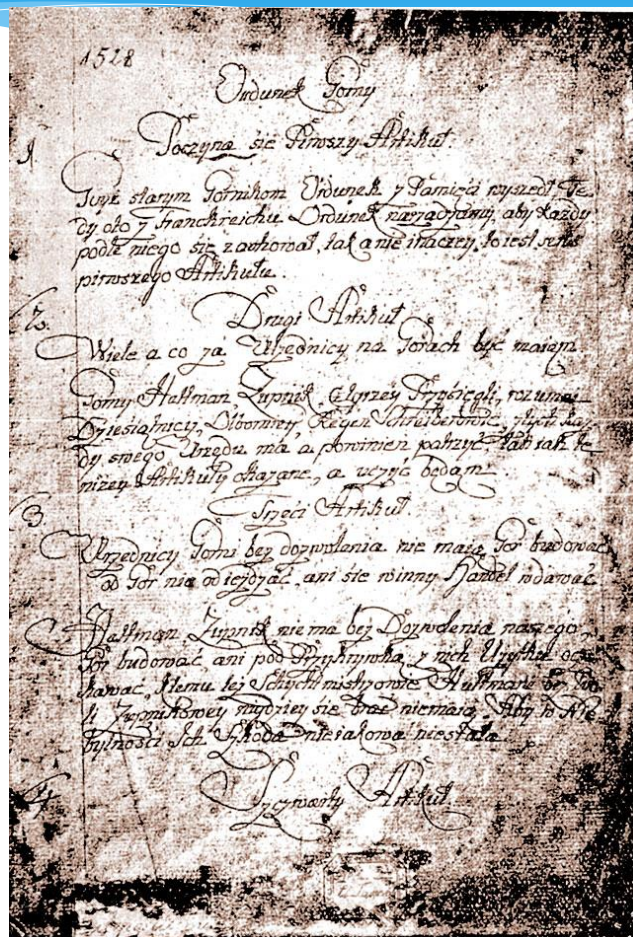 1528
Ordunek Gorny
Poczyna się Pirwszy Artikuł.
1.
Gdyż starym Gornikom Ordunek z Pamięci wyszedł Te-
dy oto z Franckreichu Ordunek naznaczamy, aby każdy
podle niego się zachował, tak a nie inaczey, to iest
pirwszego Artikułu.
2.
Drugi Artikuł
Wiele a co za Urzędnicy na Gorach być maiąm
Gorny Hettman Zupnik,
Dziesiątnicy,
dy swego Urzędu ma, a powinien patrzyć, tak iak te
niżey Artikuły okazane, a uczyć będąm
Trzeci Artikuł.
3.
Urzędnicy Gorni bez dozwolenia nie maią Gor budować
od Gor nie odieżdzać, ani się winny Handel wdawać
Hettman Zupnik nie ma bez Dozwolenia naszego
Gor budować, ani pod Przykrywką, z nich Użytku
kawać, k temu tez Schychtmistrzowie Hettmane
li Zupnikowey się brać niemaią, Aby w Nie-
bytności Ich Szkoda niestała.
4.
Czwarty Artikuł.